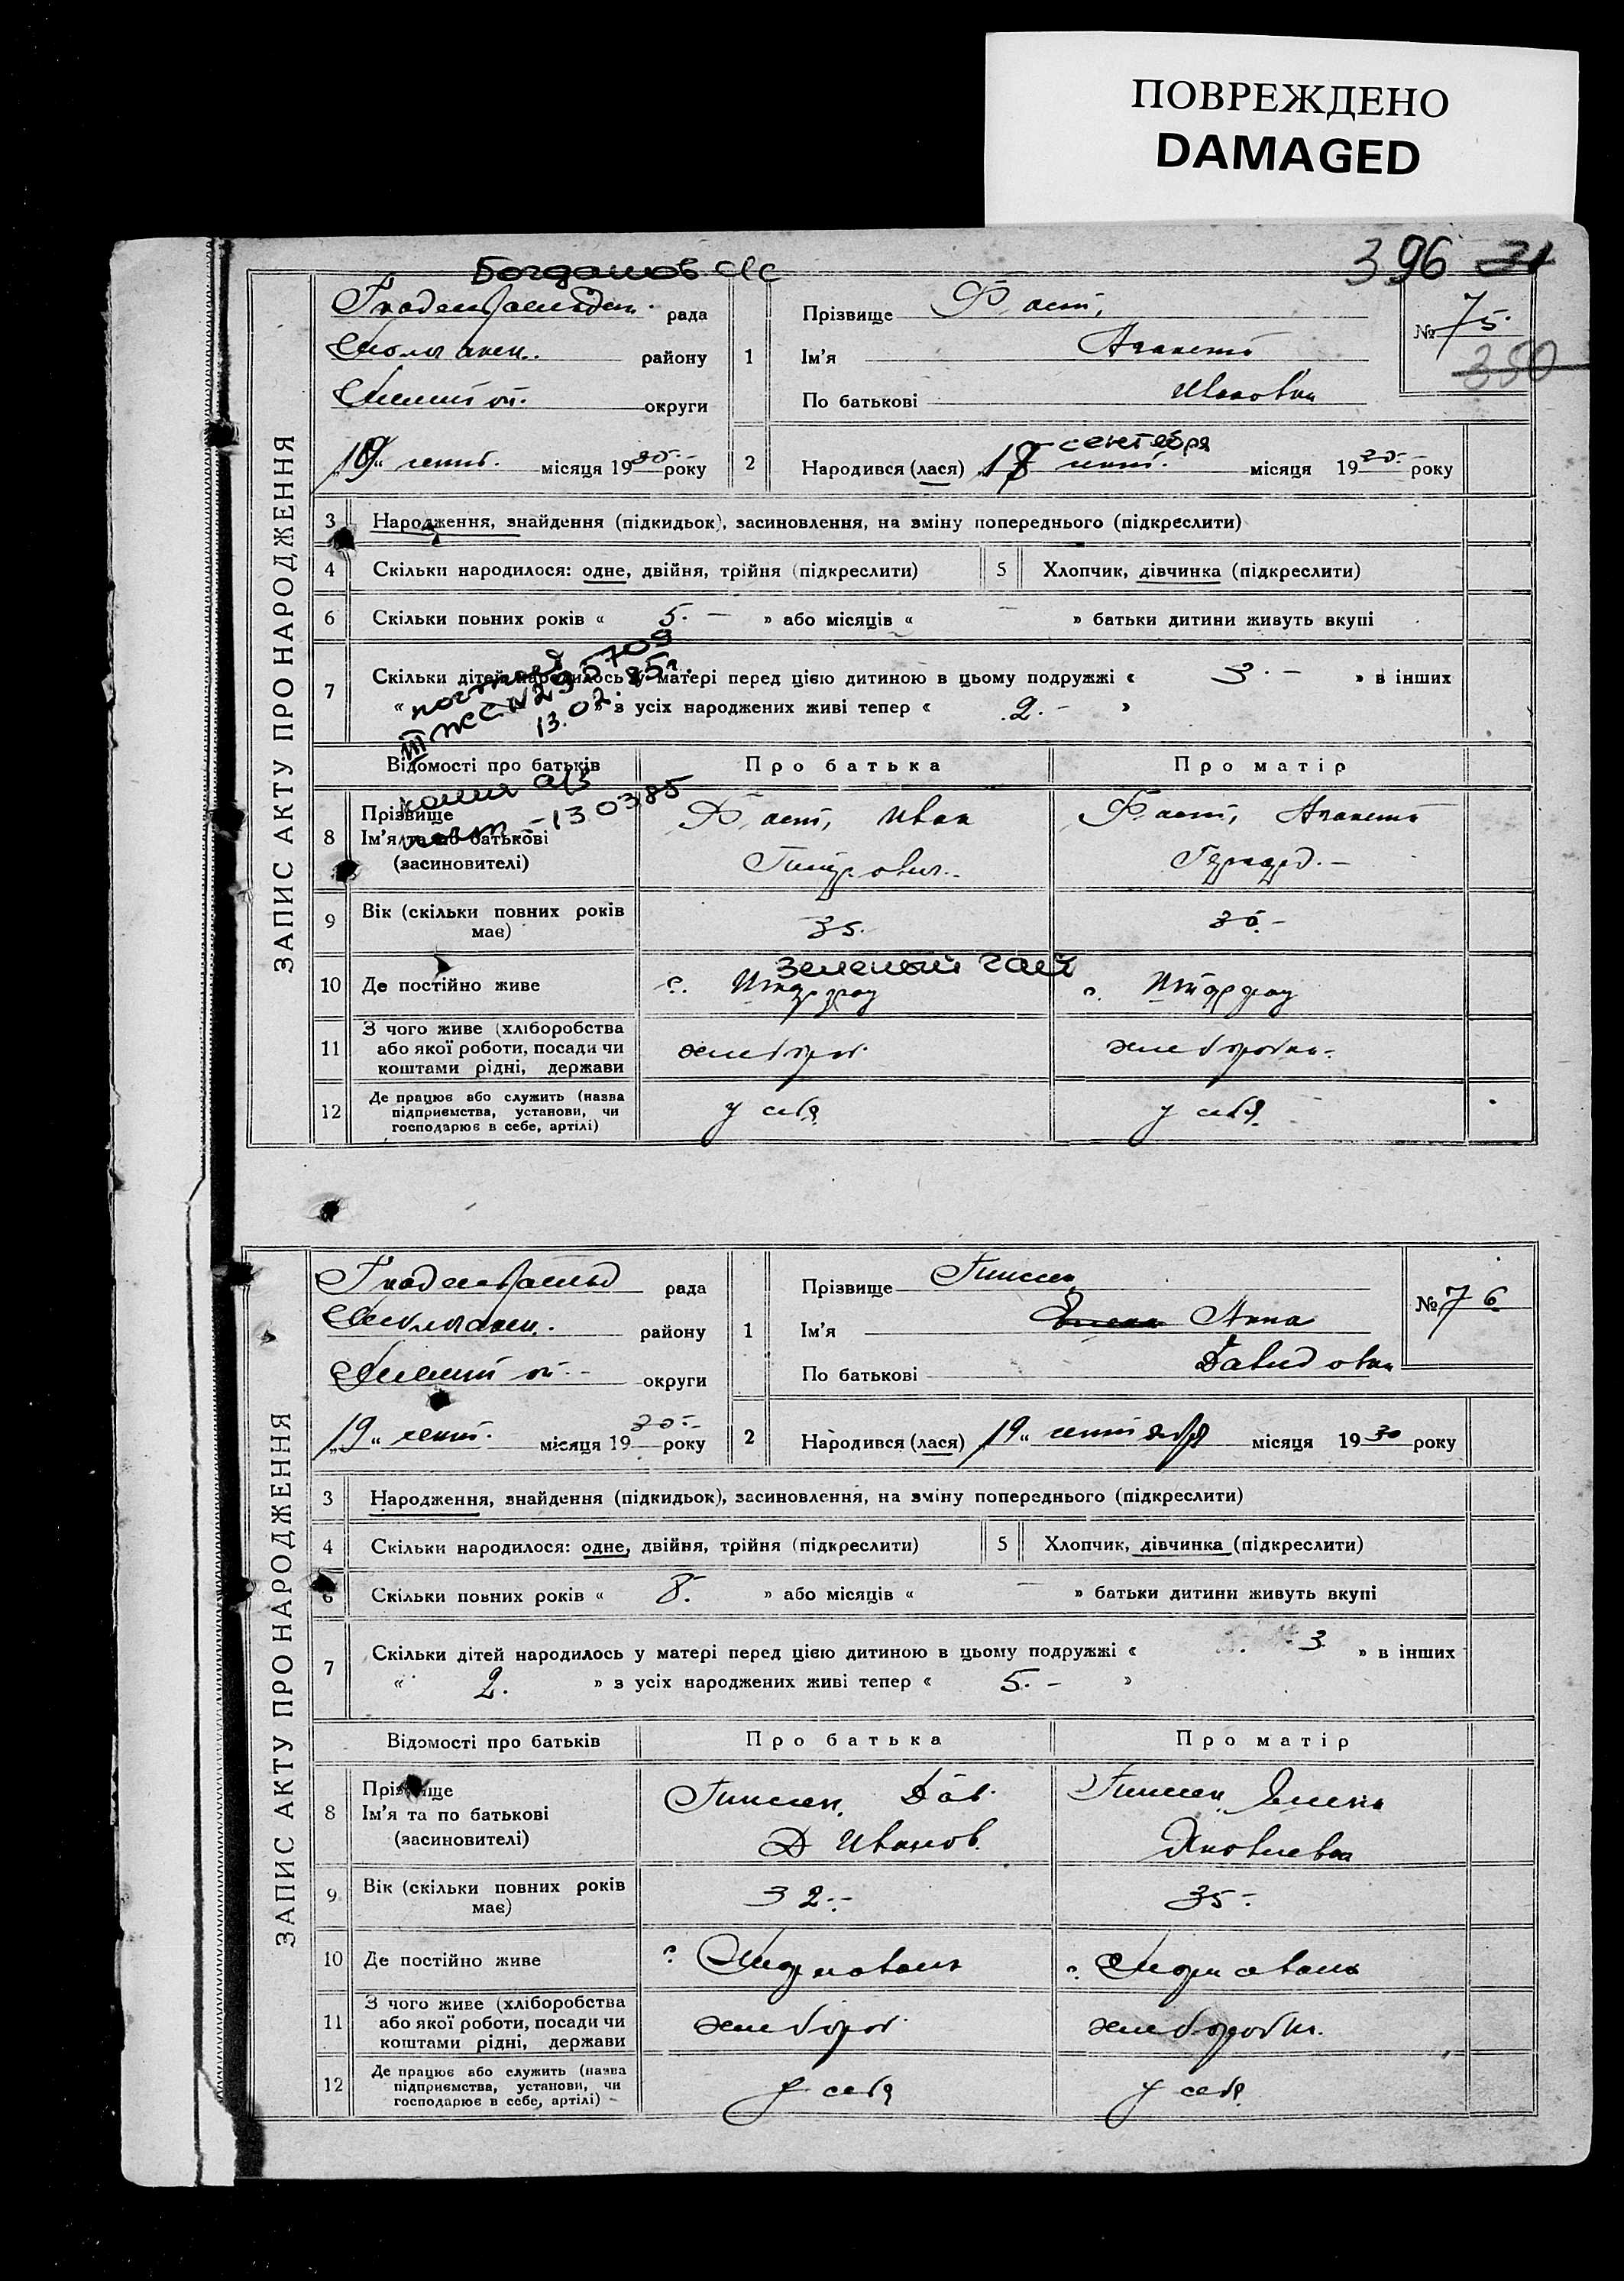 ПОВРЕЖДЕНО
DAMAGED
396 31
Богданов с/с
ЗАПИС АКТУ ПРО НАРОДЖЕННЯ
рада
району
округи
„19“ сент. місяця 1930 року
1
Прізвище Фаст,
Ім'я Аганета
По батькові Ивановна
№ 75.
350
2
сентября
Народився (лася) сент. місяця 1930 року
3 Народження, знайдення (підкидьок), засиновлення, на зміну попереднього (підкреслити)
4 Скільки народилося: одне, двійня, трійня (підкреслити) 5 Хлопчик, дівчинка (підкреслити)
6 Скільки повних років « 5. – » або місяців « – » батьки дитини живуть вкупі
7 Скільки дітей народилось у матері перед цією дитиною в цьому подружжі « 3. – » в інших
« » з усіх народжених живі тепер « 2. – »
13.02.85г.
Відомості про батьків Про батька Про матір
копия а/з
- 130385
8 Прізвище
Ім'я та по батькові
(засновителі)
Фаст, Иван
Петрович.
Фаст, Аганета
Герхард. –
9 Вік (скільки повних років має) 35. 30. –
Зеленый Гай
10 Де постійно живе с. с.
11 З чого живе (хліборобства
або якої роботи, посади чи
коштами рідні, держави
хлебороб. хлеборобка.
12 Де працює або служить (назва
підприємства, установи, чи
господарює в себе, артілі)
у себя у себя
ЗАПИС АКТУ ПРО НАРОДЖЕННЯ
рада
району
округи
„19“ сент. місяця 1930 року
1
Прізвище Гиссен
Ім'я Анна
По батькові Давидовна
№ 76
2 Народився (лася) „19“ сентября місяця 1930 року
3 Народження, знайдення (підкидьок), засиновлення, на зміну попереднього (підкреслити)
4 Скільки народилося: одне, двійня, трійня (підкреслити) 5 Хлопчик, дівчинка (підкреслити)
6 Скільки повних років « 8. » або місяців « – » батьки дитини живуть вкупі
7 Скільки дітей народилось у матері перед цією дитиною в цьому подружжі « 3 » в інших
« 2. » з усіх народжених живі тепер « 5. – »
Відомості про батьків Про батька Про матір
8 Прізвище
Ім'я та по батькові
(засиновителі)
Гиссен, Дав.
Иванов.
Гиссен, Елена
Яковлевна
9 Вік (скільки повних років має) 32. – 35 –
10 Де постійно живе с. с.
11 З чого живе (хліборобства
або якої роботи, посади чи
коштами рідні, держави
хлебороб. хлеборобка.
12 Де працює або служить (назва
підприємства, установи, чи
господарює в себе, артілі)
у себя у себя